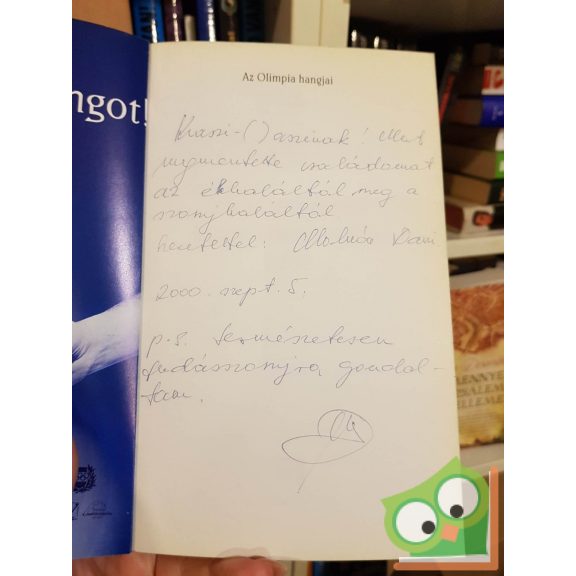 ngot!
Az Olimpia hangjai
Kraszi-( )aszinak! Mert
megmentette családomat
az éhhaláltól meg a
szomjhaláltól
Szeretettel: Molnár Dani
2000. szept. 5.
p.s. természetesen
tudásszomjra gondol-
tam.